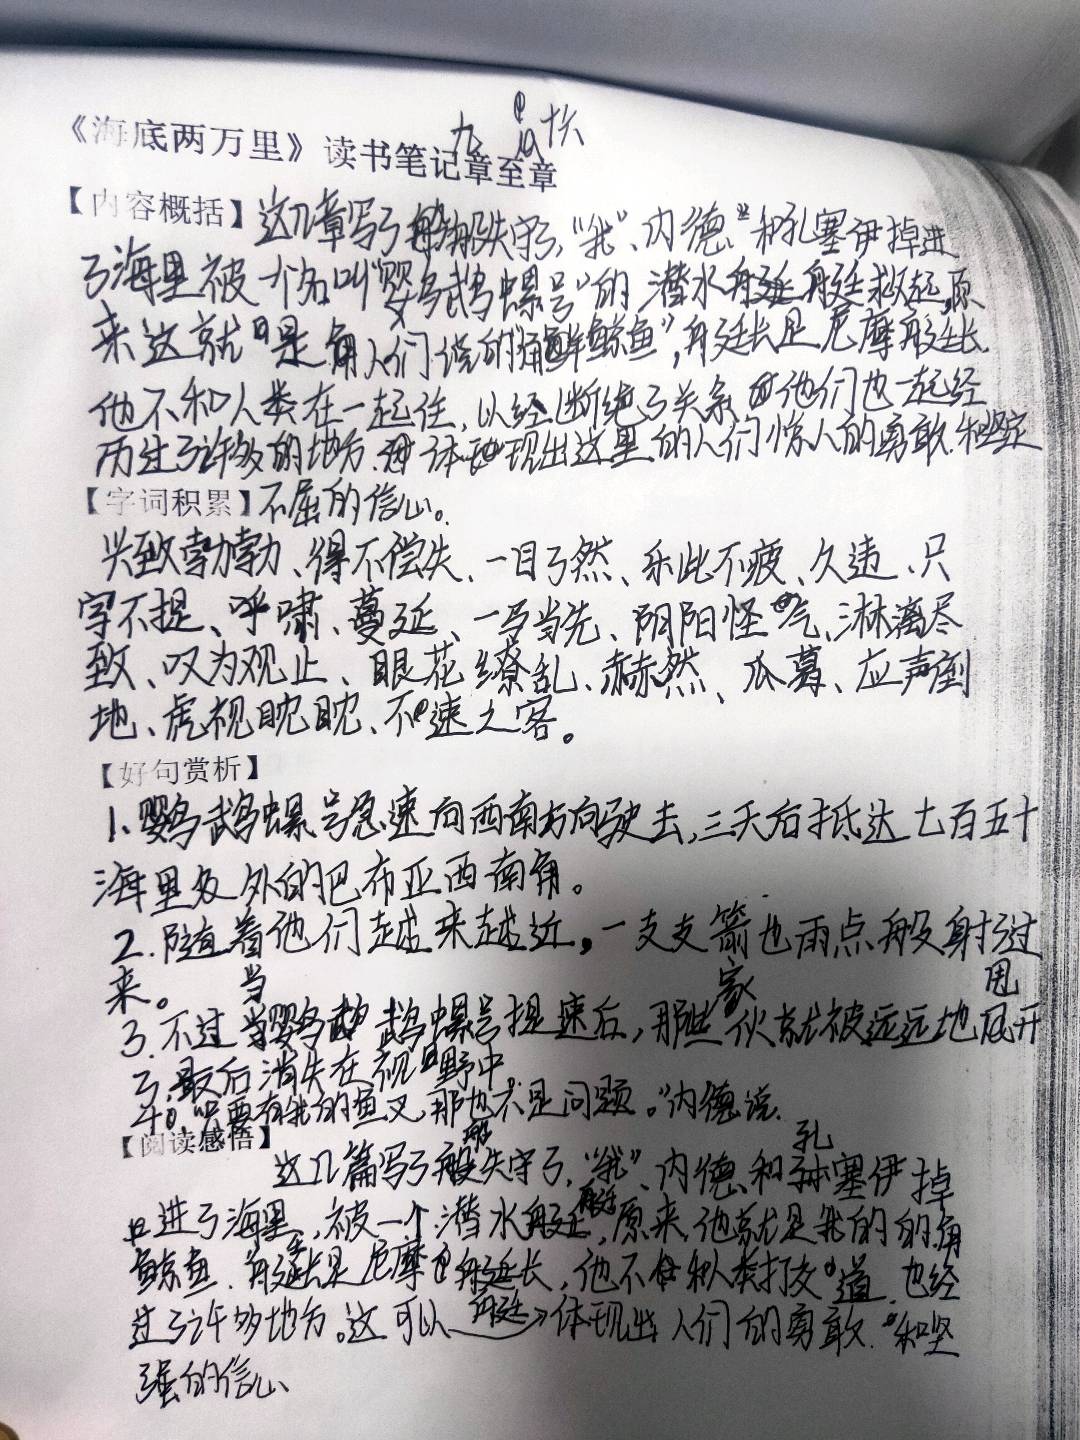 九 十六
《海底两万里》读书笔记章至章
【内容概括】这几章写了船失守了，“我”、内德、和孔塞伊掉进
了海里被一个名叫“鹦鹉螺号”的潜水艇救起，原
来这就是人们说的“角鲸鱼”，艇长是尼摩艇长.
他不和人类在一起住，以经断绝了关系 他们也一起经
历过了许多的地方.体现出这里的人们惊人的勇敢.和坚定
【字词积累】不屈的信心。
兴致勃勃、得不偿失、一目了然、乐此不疲、久违、只
字不提、呼啸、蔓延、一马当先、阴阳怪气、淋漓尽
致、叹为观止、眼花缭乱、赫然、瓜葛、应声倒
地、虎视眈眈、不速之客。
【好句赏析】
1.鹦鹉螺号急速向西南方向驶去，三天后抵达七百五十
海里外的巴布亚西南角。
2.随着他们越来越近，一支支箭也雨点般射了过
来。
3.不过当鹦鹉螺号提速后，那些家伙就被远远地甩开
了，最后消失在视野中。
4.“只要有我的鱼叉，那也不是问题。”内德说.
【阅读感悟】
这几篇写了船失守了，“我”、内德、和孔塞伊掉
进了海里，被一个潜水艇，原来他就是我的的角
鲸鱼.艇长是尼摩艇长，他不和人类打交道.也经
过了许多地方。这可以体现出人们的勇敢.和坚
强的信心、